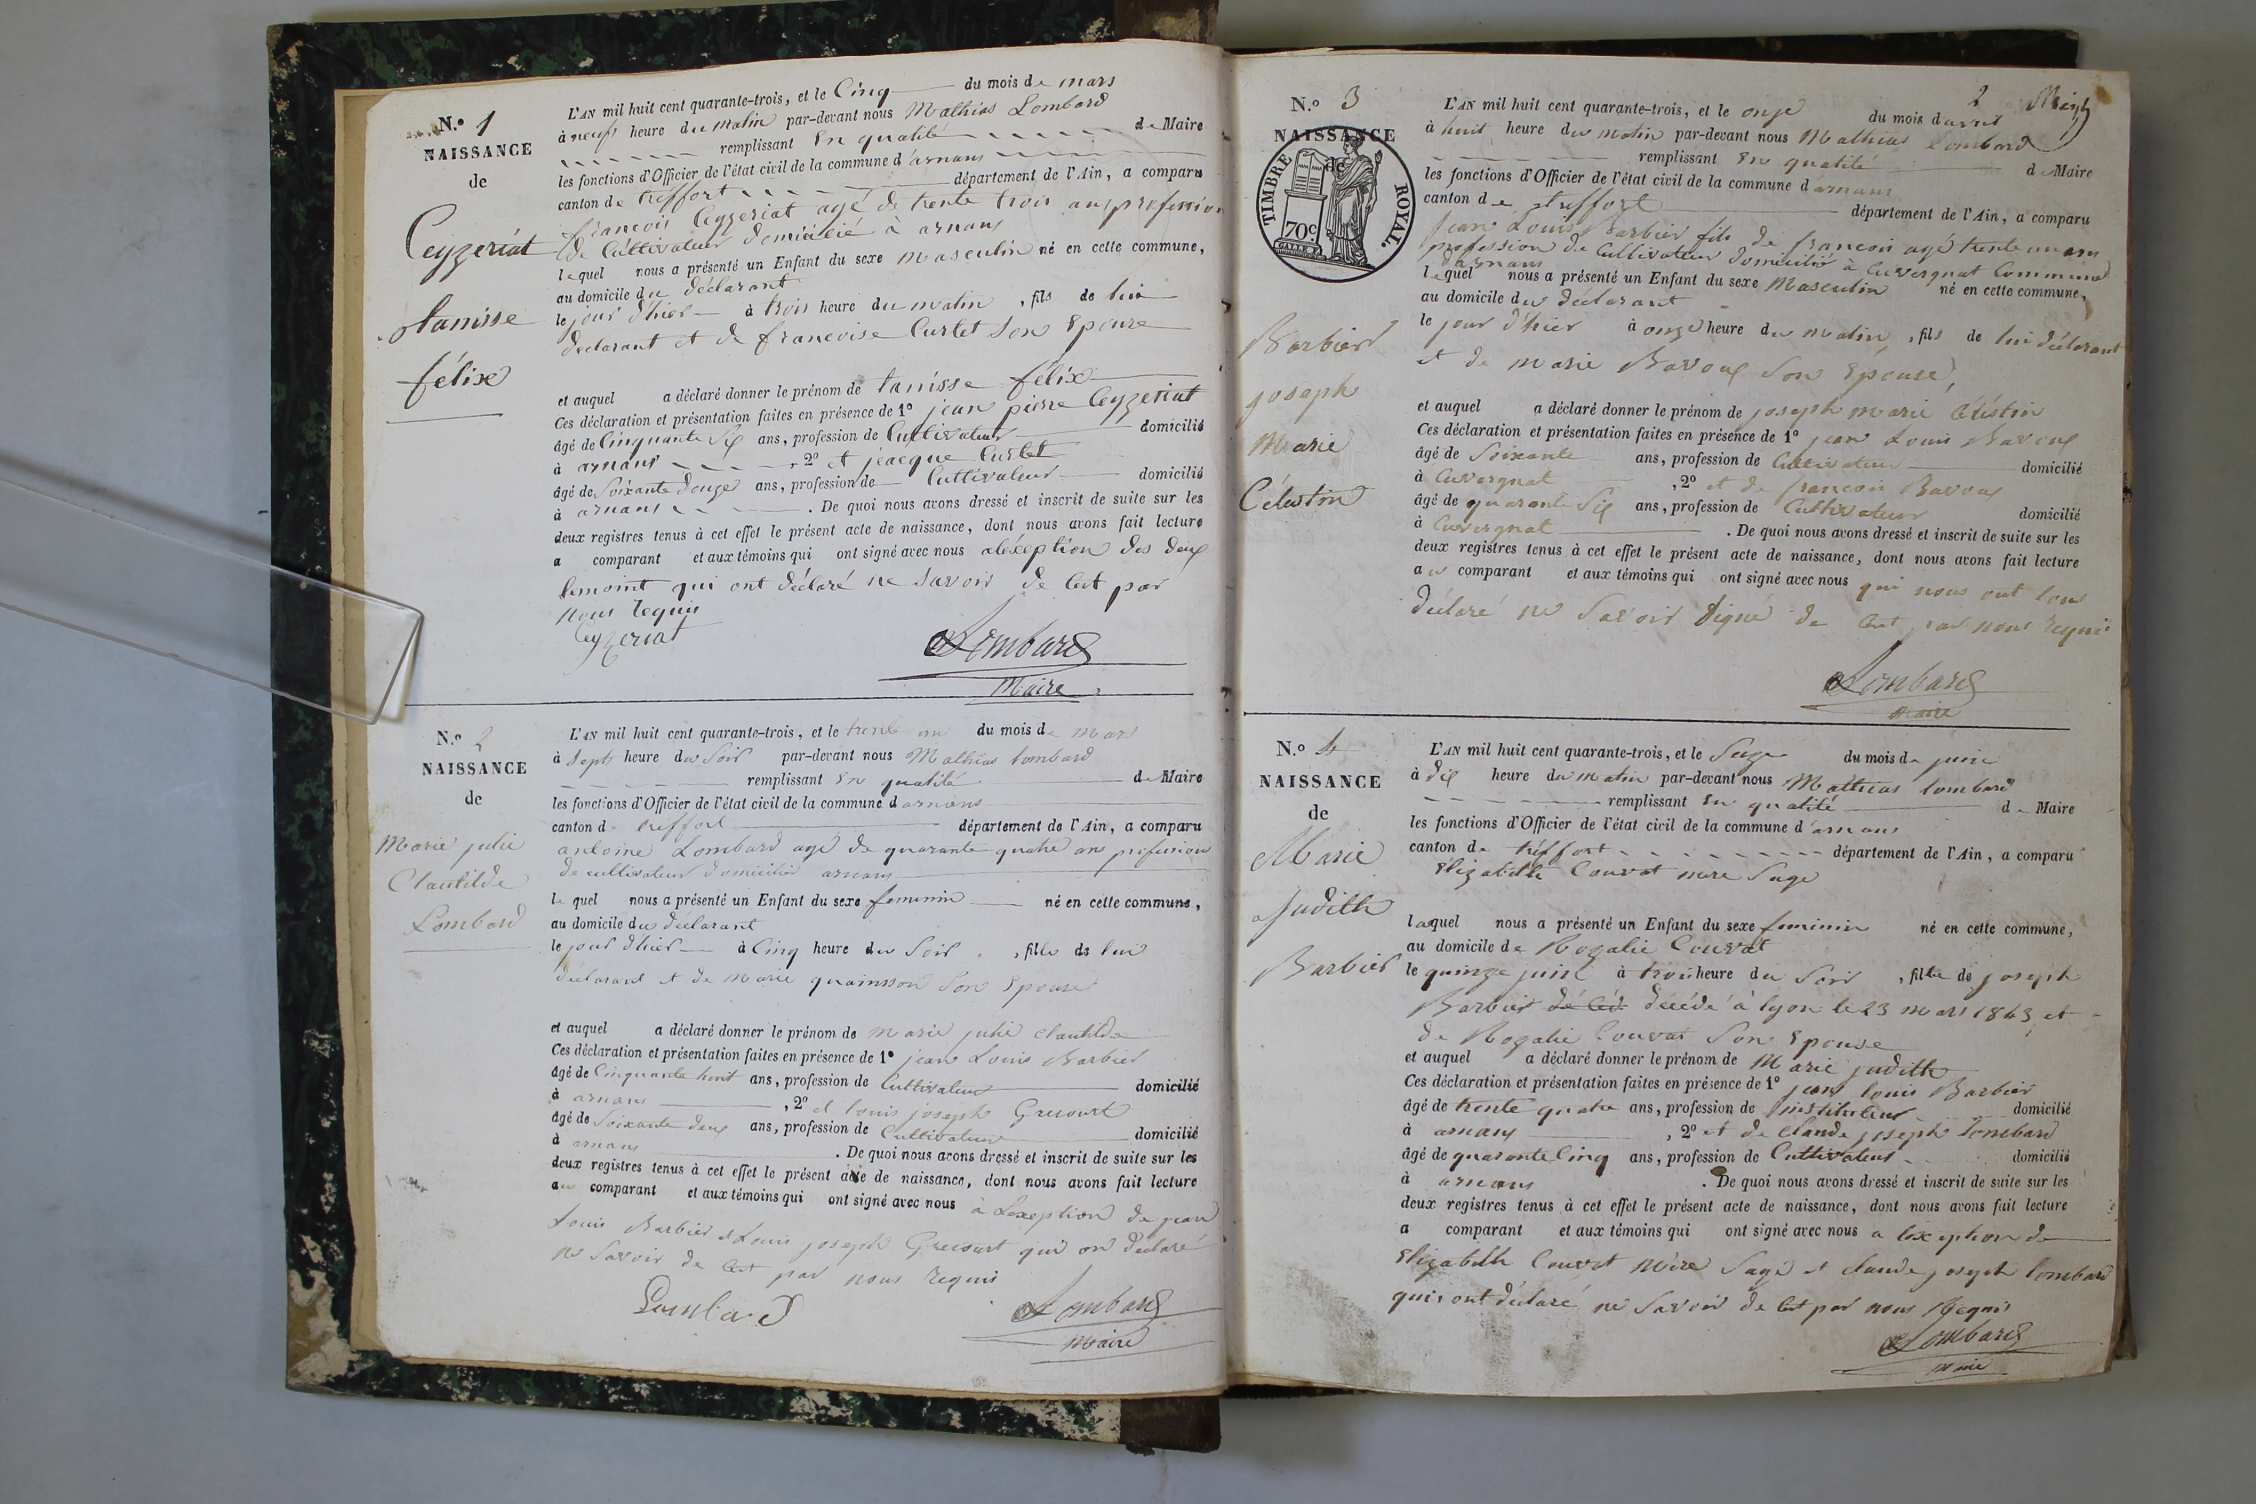 N.o 1
NAISSANCE
de
Ceyzeriat
tanisse
félix
L'AN mil huit cent quarante-trois, et le Cinq du mois de mars
à neuf heure du matin par-devant nous Mathias Lombard
remplissant En qualité de Maire
les fonctions d'Officier de l'état civil de la commune d'arnans
canton de treffort département de l'Ain, a comparu
francois Ceyzeriat agé de trente trois ans profession
de Cultivateur domicilié à arnans
lequel nous a présenté un Enfant du sexe Masculin né en cette commune,
au domicile du déclarant
le jour d'hier à trois heure du matin, fils de lui
declarant et de francoise Curtet Son Epouse
et auquel a déclaré donner le prénom de tanisse félix
Ces déclaration et présentation faites en présence de 1o jean pierre Ceyzeriat
âgé de Cinquante Six ans, profession de Cultivateur domicilié
à arnans, 2o et jeacque Curtet
âgé de Soixante douze ans, profession de Cultivateur domicilié
à arnans. De quoi nous avons dressé et inscrit de suite sur les
deux registres tenus à cet effet le présent acte de naissance, dont nous avons fait lecture
a comparant et aux témoins qui ont signé avec nous aléxeption des deux
temoint qui ont déclaré ne Savoir de Cet par
nous Requis
Ceyzeriat
Lombard
Maire
N.o 2
NAISSANCE
de
Marie julie
Clautilde
Lombard
L'AN mil huit cent quarante-trois, et le trente un du mois de Mars
à Sept heure du Soir par-devant nous Mathias lombard
remplissant En qualité de Maire
les fonctions d'Officier de l'état civil de la commune d arnans
canton de treffort département de l'Ain, a comparu
antoine Lombard agé de quarante quatre ans profession
de cultivateur domicilié arnans
le quel nous a présenté un Enfant du sexe feminin né en cette commune,
au domicile du déclarant
le jour d'hier à Cinq heure du Soir, fille de lui
déclarant et de Marie Son Epouse
et auquel a déclaré donner le prénom de marie julie clautilde
Ces déclaration et présentation faites en présence de 1o jean Louis Barbier
âgé de Cinquante huit ans, profession de Cultivateur domicilié
à arnans, 2o et louis joseph Grecourt
âgé de Soixante deux ans, profession de Cultivateur domicilié
à arnans. De quoi nous avons dressé et inscrit de suite sur les
deux registres tenus à cet effet le présent acte de naissance, dont nous avons fait lecture
au comparant et aux témoins qui ont signé avec nous à Léxeption de jean
Louis Barbier et Louis joseph Grecourt qui on déclaré
ne Savoir de Cet par nous requis
Lombard
Lombard
Maire
2
N.o 3
NAISSANCE
de
TIMBRE ROYAL.
70c.
Barbier
joseph
Marie
Célestin
L'AN mil huit cent quarante-trois, et le onze du mois d'avril
à huit heure du matin par-devant nous Mathias Lombard
remplissant En qualité de Maire
les fonctions d'Officier de l'état civil de la commune d'arnans
canton de treffort département de l'Ain, a comparu
jean Louis Barbier fils de francois agé trente un ans
profession de Cultivateur domicilié à Cuvergnat Commune
d'arnans
lequel nous a présenté un Enfant du sexe Masculin né en cette commune,
au domicile du déclarant
le jour d'hier à onze heure du matin, fils de lui déclarant
et de marie Bavoux Son Epouse,
et auquel a déclaré donner le prénom de joseph marie Céléstin
Ces déclaration et présentation faites en présence de 1o jean Louis Bavoux
âgé de Soixante ans, profession de Cultivateur domicilié
à Cuvergnat, 2o et de francois Bavoux
âgé de quarante Six ans, profession de Cultivateur domicilié
à Cuvergnat. De quoi nous avons dressé et inscrit de suite sur les
deux registres tenus à cet effet le présent acte de naissance, dont nous avons fait lecture
au comparant et aux témoins qui ont signé avec nous qui nous ont tous
déclaré ne Savoir Signé de Cet par nous requis
Lombard
Maire
N.o 4
NAISSANCE
de
Marie
Judith
Barbier
L'AN mil huit cent quarante-trois, et le Seize du mois de juin
à dix heure du matin par-devant nous Mathias lombard
remplissant En qualité de Maire
les fonctions d'Officier de l'état civil de la commune d'arnans
canton de tréffort département de l'Ain, a comparu
Elizabeth Couvat mere Sage
laquel nous a présenté un Enfant du sexe feminin né en cette commune,
au domicile de Rozalie Couvat
le quinze juin à trois heure du Soir, fille de joseph
Barbier décédé à lyon le 23 mars 1843 et
de Rozalie Couvat Son Epouse
et auquel a déclaré donner le prénom de Marie judith
Ces déclaration et présentation faites en présence de 1o jean louis Barbier
âgé de trente quatre ans, profession de instituteur domicilié
à arnans, 2o et de claude joseph Lombard
âgé de quarante Cinq ans, profession de Cultivateur domicilié
à arnans. De quoi nous avons dressé et inscrit de suite sur les
deux registres tenus à cet effet le présent acte de naissance, dont nous avons fait lecture
a comparant et aux témoins qui ont signé avec nous a léxeption de
Elizabeth Couvat Mère Sage et claude joseph lombard
qui ont déclaré ne Savoir de Cet par nous Requis
Lombard
Maire